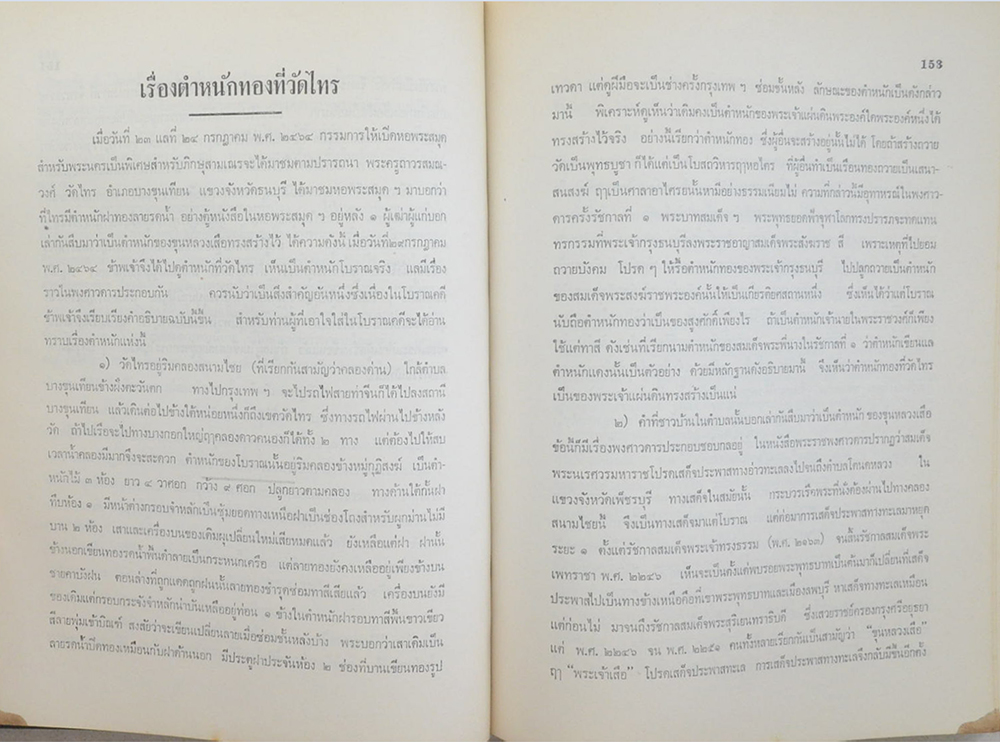 เรื่องตำหนักทองที่วัดไทร
เมื่อวันที่ ๒๓ แลที่ ๒๔ กรกฎาคม พ.ศ. ๒๔๖๔ กรรมการให้เปิดหอพระสมุด
สำหรับพระนครเป็นพิเศษสำหรับภิกษุสามเณรจะได้มาชมตามปรารถนา พระครูถาวรสมณ-
วงศ์ วัดไทร อำเภอบางขุนเทียน แขวงจังหวัดธนบุรี ได้มาชมหอพระสมุด ฯ มาบอกว่า
ที่ไทรมีตำหนักฝาทองลายรดน้ำ อย่างตู้หนังสือในหอพระสมุด ฯ อยู่หลัง ๑ ผู้เฒ่าผู้แก่บอก
เล่ากันสืบมาว่าเป็นตำหนักของขุนหลวงเสือทรงสร้างไว้ ได้ความดังนี้ เมื่อวันที่๒๙กรกฎาคม
พ.ศ. ๒๔๖๔ ข้าพเจ้าจึงได้ไปดูตำหนักที่วัดไทร เห็นเป็นตำหนักโบราณจริง แลมีเรื่อง
ราวในพงศาวดารประกอบกัน ควรนับว่าเป็นสิ่งสำคัญอันหนึ่งซึ่งเนื่องในโบราณคดี
ข้าพเจ้าจึงเรียบเรียงคำอธิบายฉบับนี้ขึ้น สำหรับท่านผู้ที่เอาใจใส่ในโบราณคดีจะได้อ่าน
ทราบเรื่องตำหนักแห่งนี้
๑) วัดไทรอยู่ริมคลองสนามไชย (ที่เรียกกันสามัญว่าคลองด่าน) ใกล้ตำบล
บางขุนเทียนข้างฝั่งตะวันตก ทางไปกรุงเทพ ฯ จะไปรถไฟสายท่าจีนก็ได้ไปลงสถานี
บางขุนเทียน แล้วเดินต่อไปข้างใต้หน่อยหนึ่งก็ถึงเขตวัดไทร ซึ่งทางรถไฟผ่านไปข้างหลัง
วัด ถ้าไปเรือจะไปทางบางกอกใหญ่ฤๅคลองดาวคนองก็ได้ทั้ง ๒ ทาง แต่ต้องไปให้สบ
เวลาน้ำคลองมีมากจึงจะสะดวก ตำหนักของโบราณนั้นอยู่ริมคลองข้างหมู่กุฏิสงฆ์ เป็นตำ-
หนักไม้ ๓ ห้อง ยาว ๔ วาศอก กว้าง ๙ ศอก ปลูกยาวตามคลอง ทางด้านใต้กั้นฝา
ทึบห้อง ๑ มีหน้าต่างกรอบจำหลักเป็นซุ้มยอดทางเหนือฝาเป็นช่องโถงสำหรับผูกม่านไม่มี
บาน ๒ ห้อง เสาและเครื่องบนของเดิมผุเปลี่ยนใหม่เสียหมดแล้ว ยังเหลือแต่ฝา ฝานั้น
ข้างนอกเขียนทองรดน้ำพื้นดำลายเป็นกระหนกเครือ แต่ลายทองยังคงเหลืออยู่เพียงข้างบน
ชายคาบังฝน ตอนล่างที่ถูกแดดถูกฝนนั้นลายทองชำรุดซ่อมทาสีเสียแล้ว เครื่องบนยังมี
ของเดิมแต่กรอบกระจังจำหลักน่าบันเหลืออยู่ท่อน ๑ ข้างในตำหนักฝารอบทาสีพื้นขาวเขียว
สีลายพุ่มเข้าบิณฑ์ สงสัยว่าจะเขียนเปลี่ยนลายเมื่อซ่อมชั้นหลังบ้าง พระบอกว่าเสาเดิมเป็น
ลายรดน้ำปิดทองเหมือนกับฝาด้านนอก มีประตูฝาประจันห้อง ๒ ช่องที่บานเขียนทองรูป
153
เทวดา แต่ดูฝีมือจะเป็นช่างครั้งกรุงเทพ ฯ ซ่อมชั้นหลัง ลักษณะของตำหนักเป็นดังกล่าว
มานี้ พิเคราะห์ดูเห็นว่าเดิมคงเป็นตำหนักของพระเจ้าแผ่นดินพระองค์ใดพระองค์หนึ่งได้
ทรงสร้างไว้จริง อย่างนี้เรียกว่าตำหนักทอง ซึ่งผู้อื่นจะสร้างอยู่นั้นไม่ได้ โดยถ้าสร้างถวาย
วัดเป็นพุทธบูชา ก็ได้แต่เป็นโบสถวิหารฤๅหอไตร ที่ผู้อื่นทำเป็นเรือนทองถวายเป็นเสนา-
สนสงฆ์ ฤๅเป็นศาลาอาไศรยอันนั้นหามีอย่างธรรมเนียมไม่ ความที่กล่าวนี้มีอุทาหรณ์ในพงศาว-
ดารครั้งรัชกาลที่ ๑ พระบาทสมเด็จ ฯ พระพุทธยอดฟ้าจุฬาโลกทรงปรารภจะทดแทน
ทรกรรมที่พระเจ้ากรุงธนบุรีลงพระราชอาญาสมเด็จพระสังฆราช สี เพราะเหตุที่ไปยอม
ถวายบังคม โปรด ฯ ให้รื้อตำหนักทองของพระเจ้ากรุงธนบุรี ไปปลูกถวายเป็นตำหนัก
ของสมเด็จพระสงฆ์ราชพระองค์นั้นให้เป็นเกียรติยศสถานหนึ่ง ซึ่งเห็นได้ว่าแต่โบราณ
นับถือตำหนักทองว่าเป็นของสูงศักดิ์เพียงไร ถ้าเป็นตำหนักเจ้านายในพระราชวงศ์ก็เพียง
ใช้แต่ทาสี ดังเช่นที่เรียกนามตำหนักของสมเด็จพระพี่นางในรัชกาลที่ ๑ ว่าตำหนักเขียนแล
ตำหนักแดงนั้นเป็นตัวอย่าง ด้วยมีหลักฐานดังอธิบายมานี้ จึงเห็นว่าตำหนักทองที่วัดไทร
เป็นของพระเจ้าแผ่นดินทรงสร้างเป็นแน่
๒) คำที่ชาวบ้านในตำบลนั้นบอกเล่ากันสืบมาว่าเป็นตำหนัก ของขุนหลวงเสือ
ข้อนี้ก็มีเรื่องพงศาวดารประกอบชอบกลอยู่ ในหนังสือพระราชพงศาวดารปรากฏว่าสมเด็จ
พระนเรศวรมหาราชโปรดเสด็จประพาสทางอ่าวทะเลลงไปจนถึงตำบลโตนดหลวง ใน
แขวงจังหวัดเพ็ชรบุรี ทางเสด็จในสมัยนั้น กระบวรเรือพระที่นั่งต้องผ่านไปทางคลอง
สนามไชยนี้ จึงเป็นทางเสด็จมาแต่โบราณ แต่ต่อมาการเสด็จประพาสทางทะเลมาหยุด
ระยะ ๑ ตั้งแต่รัชกาลสมเด็จพระเจ้าทรงธรรม (พ.ศ. ๒๑๖๓) จนสิ้นรัชกาลสมเด็จพระ
เพทราชา พ.ศ. ๒๒๔๖ เห็นจะเป็นตั้งแต่พบรอยพระพุทธบาทเป็นต้นมาก็เปลี่ยนที่เสด็จ
ประพาสไปเป็นทางข้างเหนือคือที่เขาพระพุทธบาทและเมืองลพบุรี หาเสด็จทางทะเลเหมือน
แต่ก่อนไม่ มาจนถึงรัชกาลสมเด็จพระสุริเยนทราธิบดี ซึ่งเสวยราชย์ครองกรุงศรีอยุธยา
แต่ พ.ศ. ๒๒๔๖ จน พ.ศ. ๒๒๕๑ คนทั้งหลายเรียกกันเป็นสามัญว่า “ขุนหลวงเสือ”
ฤๅ “พระเจ้าเสือ” โปรดเสด็จประพาสทะเล การเสด็จประพาสทางทะเลจึงกลับมีขึ้นอีกครั้ง